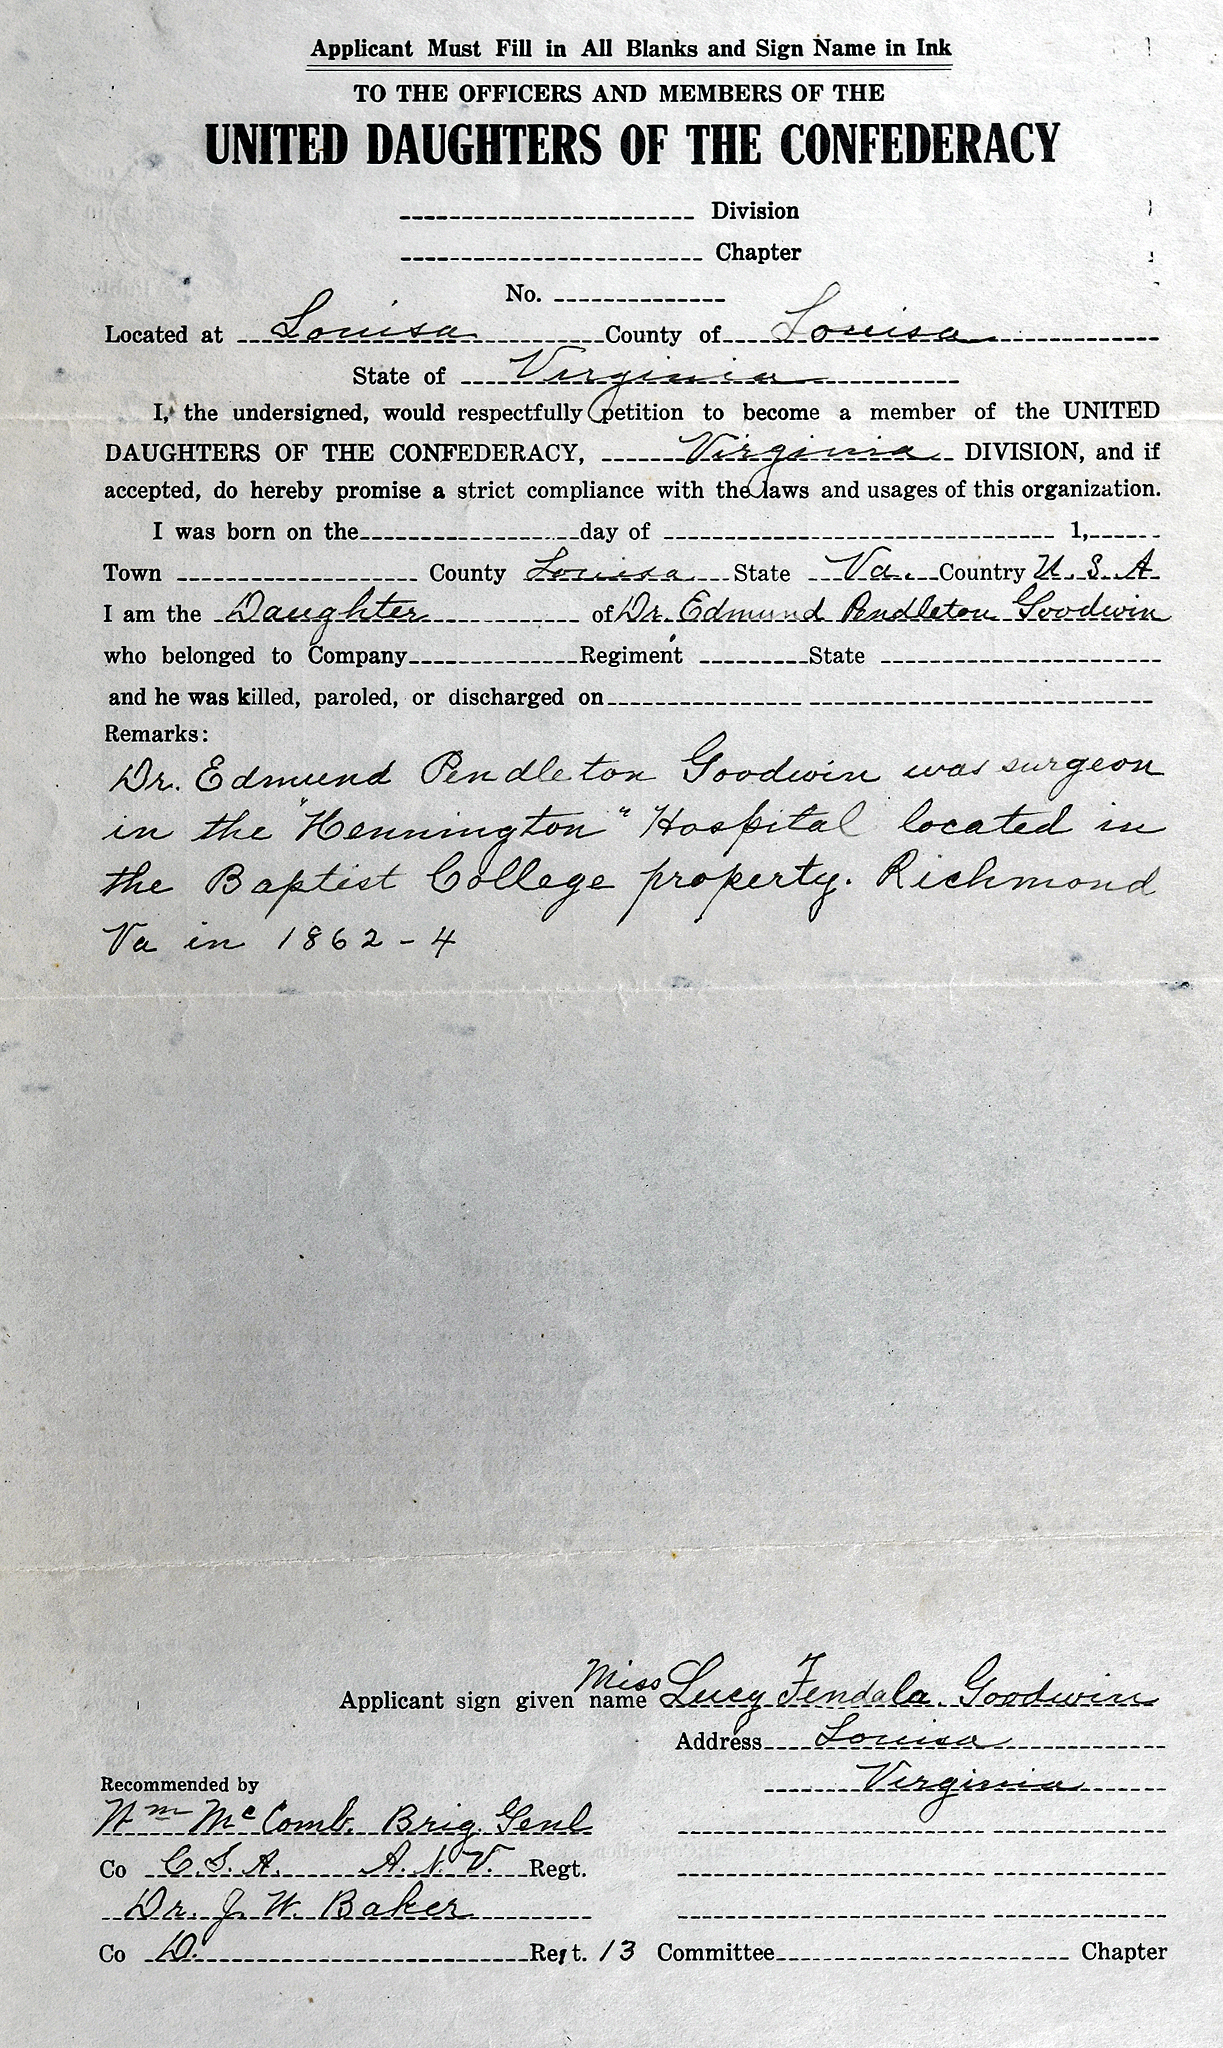 Applicant Must Fill in All Blanks and Sign Name in Ink
TO THE OFFICERS AND MEMBERS OF THE
UNITED DAUGHTERS OF THE CONFEDERACY
Division
Chapter
No.
Located at Louisa County of Louisa
State of Virginia
I, the undersigned, would respectfully petition to become a member of the UNITED
DAUGHTERS OF THE CONFEDERACY, Virginia DIVISION, and if
accepted, do hereby promise a strict compliance with the laws and usages of this organization.
I was born on the day of 1,
Town County Louisa State Va. Country U. S. A
I am the Daughter of Dr. Edmund Pendleton Goodwin
who belonged to Company Regiment State
and he was killed, paroled, or discharged on
Remarks:
Dr. Edmund Pendleton Goodwin was surgeon
in the "Hennington" Hospital located in
the Baptist College property. Richmond
Va in 1862 - 4
Applicant sign given name Miss Lucy Fendala Goodwin
Address Louisa
Virginia
Recommended by
Wm McComb. Brig. Genl
Co C. S. A. A. N. V. Regt.
Dr. J. W. Baker
Co D. Regt. 13 Committee Chapter